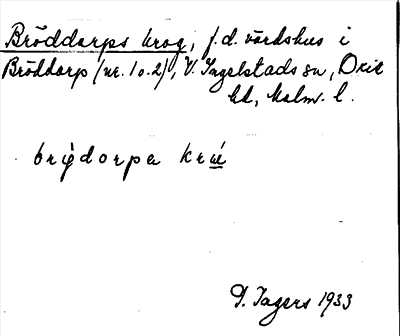 Bröddarps krog, f.d. värdshus i
Bröddarp (nr. 1 o. 2), V. Ingelstads sn, Oxie
hd, Malm. l.
brųdorpa kruͤ
P. Ingers 1933